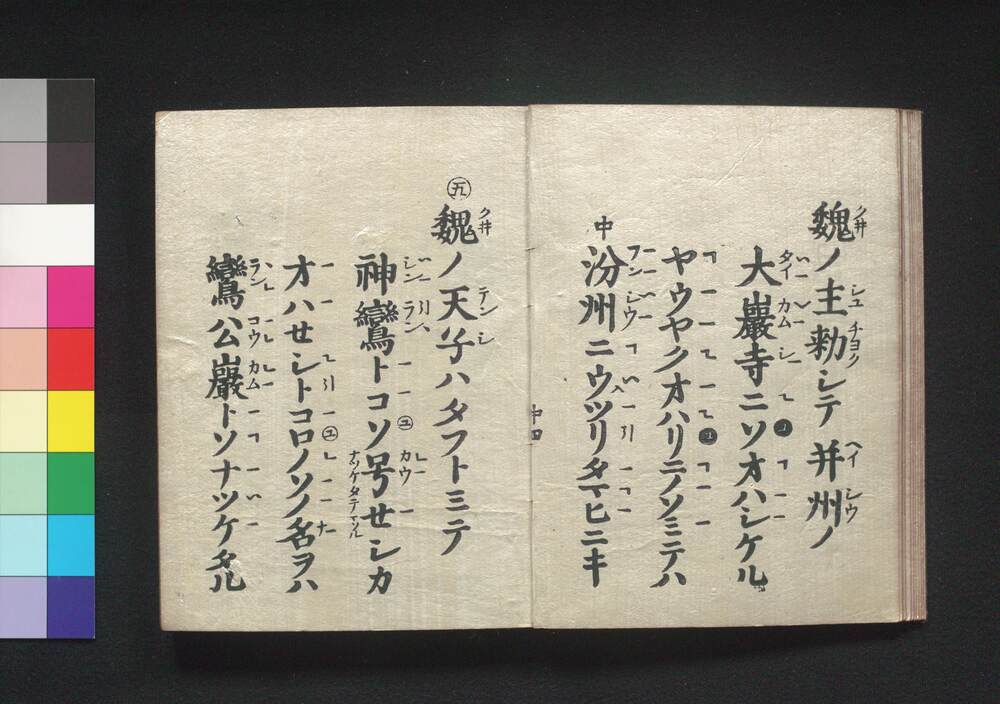 魏ノ主勅シテ并州ノ
大巖寺ニソオハシケル
ヤウヤクオハリニノソミテハ
中 汾州ニウツリタマヒニキ
中四
五 魏ノ天子ハタフトミテ
神鸞トコソ号セシカ
オハセシトコロノソノ名ヲハ
鸞公巖トソナツケタル